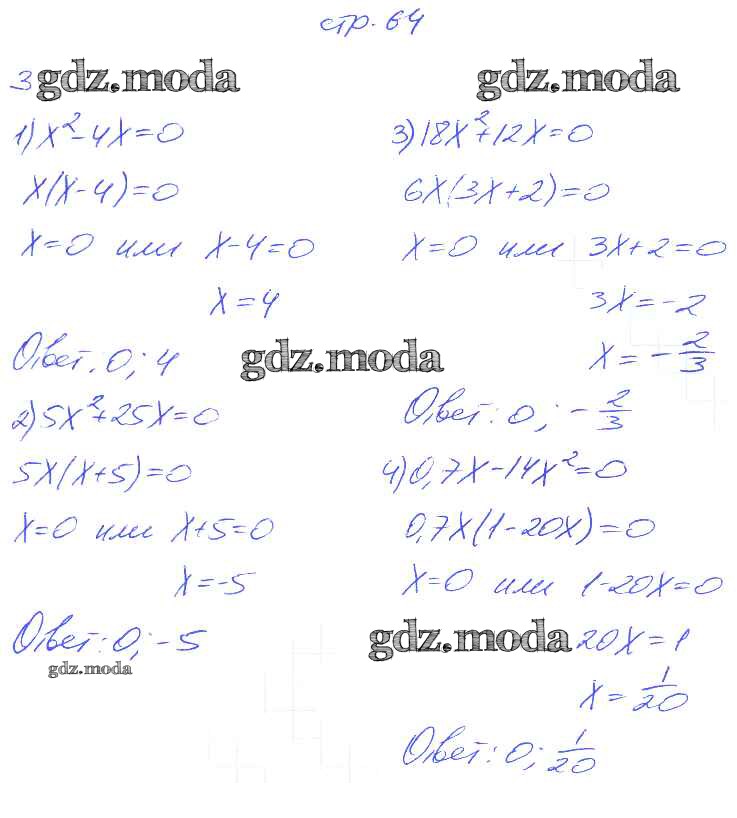 стр. 64
3 gdz.moda gdz.moda
1) x² - 4x = 0
x(x - 4) = 0
x = 0 или x - 4 = 0
x = 4
Ответ. 0; 4 gdz.moda
2) 5x² + 25x = 0
5x(x + 5) = 0
x = 0 или x + 5 = 0
x = -5
Ответ: 0; -5
gdz.moda
3) 18x² + 12x = 0
6x(3x + 2) = 0
x = 0 или 3x + 2 = 0
3x = -2
x = -2/3
Ответ: 0; -2/3
4) 0,7x - 14x² = 0
0,7x(1 - 20x) = 0
x = 0 или 1 - 20x = 0
gdz.moda 20x = 1
x = 1/20
Ответ: 0; 1/20